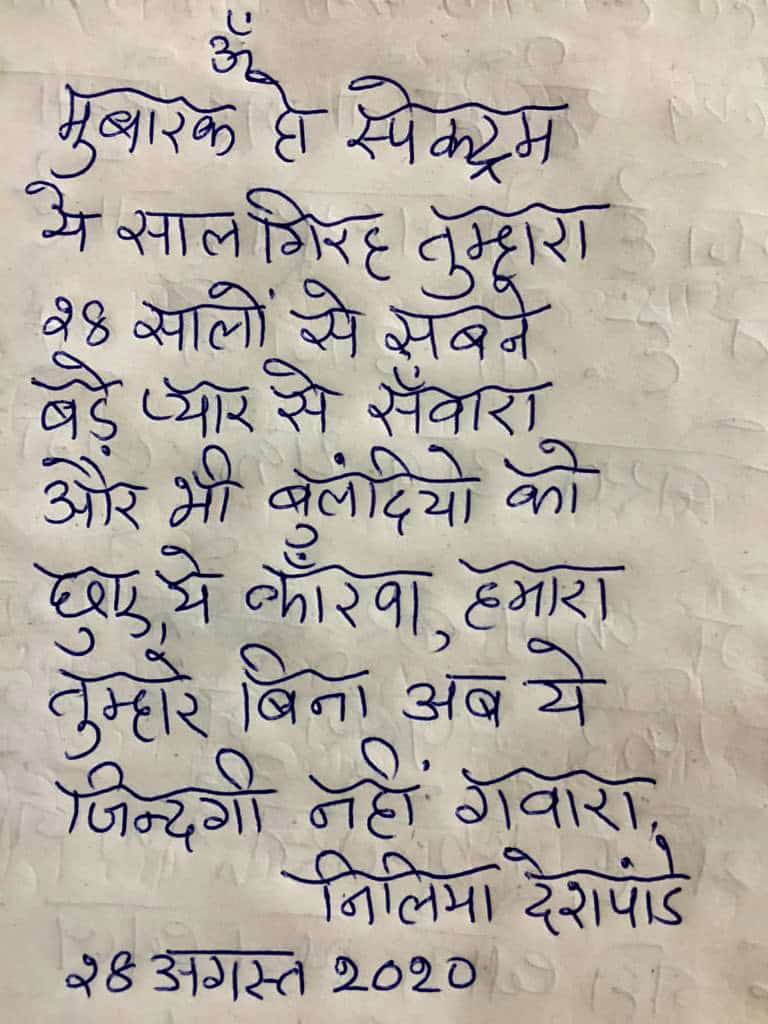 ॐ
मुबारक हो स्पेक्ट्रम
ये सालगिरह तुम्हारा
२४ सालों से सबने
बड़े प्यार से सँवारा
और भी बुलंदियो को
छुए, ये काँरवा, हमारा
तुम्हारे बिना अब ये
जिन्दगी नहीं गवारा,
निलिमा देशपांडे
२४ अगस्त 2020